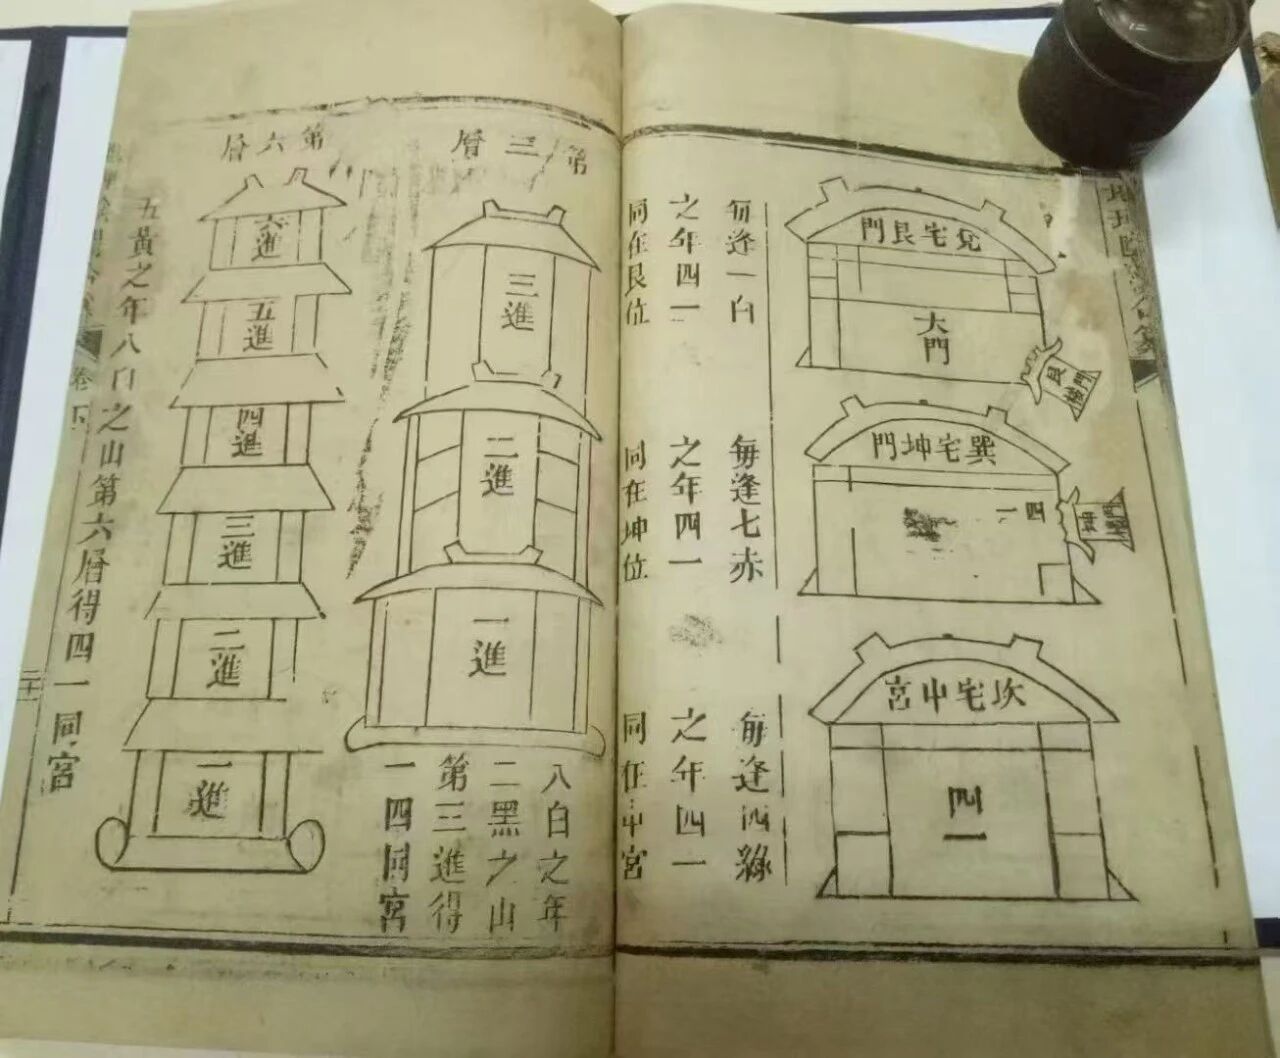 兌宅艮門
大門
艮門樓
巽宅坤門
四一
坤門樓
坎宅中宮
四一
每逢一白
之年四一
同在艮位
每逢七赤
之年四一
同在坤位
每逢四綠
之年四一
同在中宮
第三層
三進
二進
一進
八白之年
二黑之山
第三進得
一四同宮
第六層
六進
五進
四進
三進
二進
一進
五黃之年八白之山第六層得四一同宮
卷下
二十